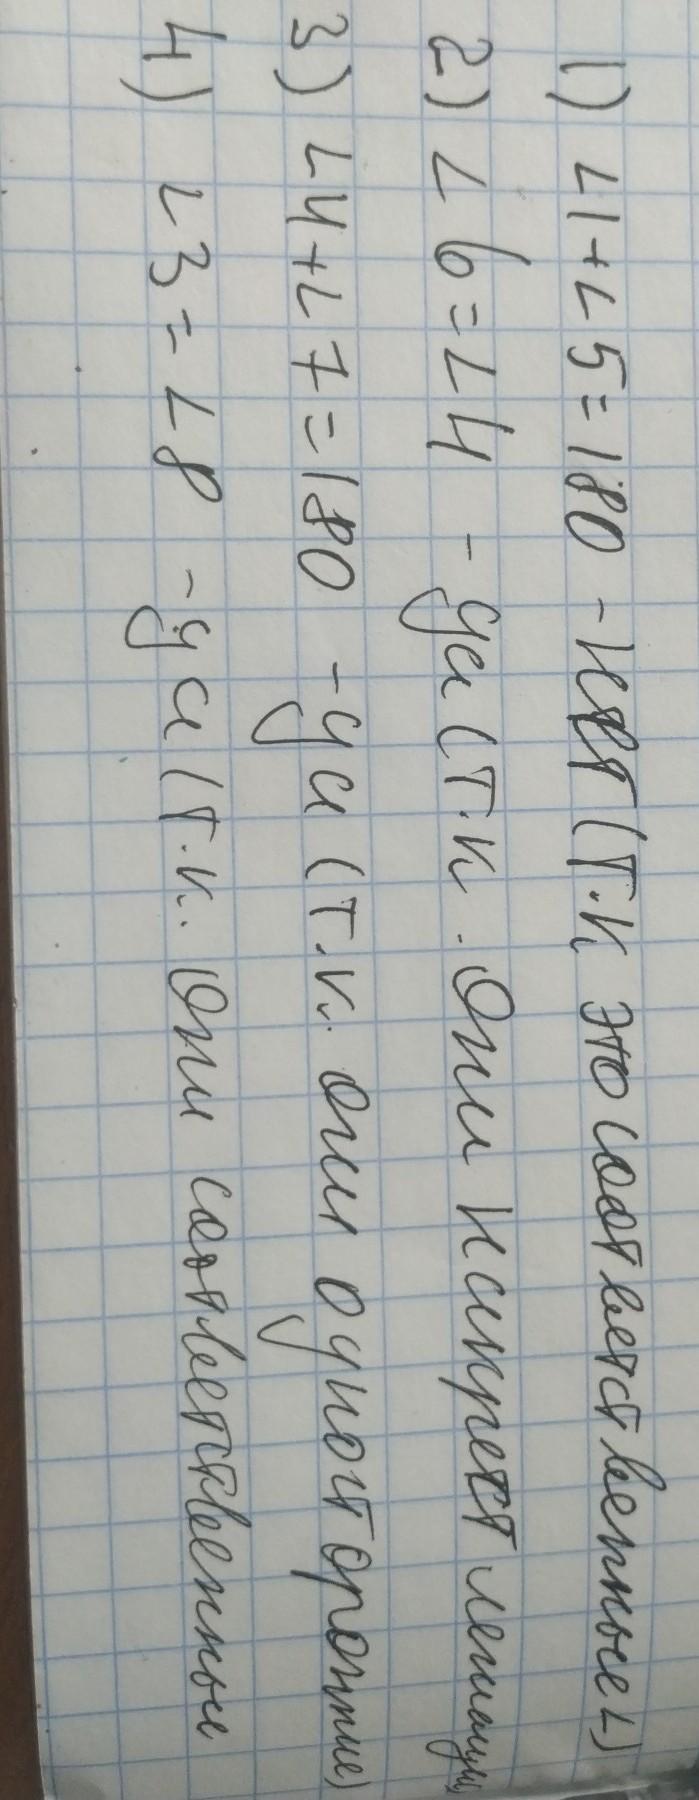 1) ∠1+∠5=180 - нет (т.к это соответственные ∠)
2) ∠6=∠4 - да (т.к. они накрест лежащие
3) ∠4+∠7=180 - да (т.к. они односторонние)
4) ∠3=∠8 - да (т.к. они соответственные